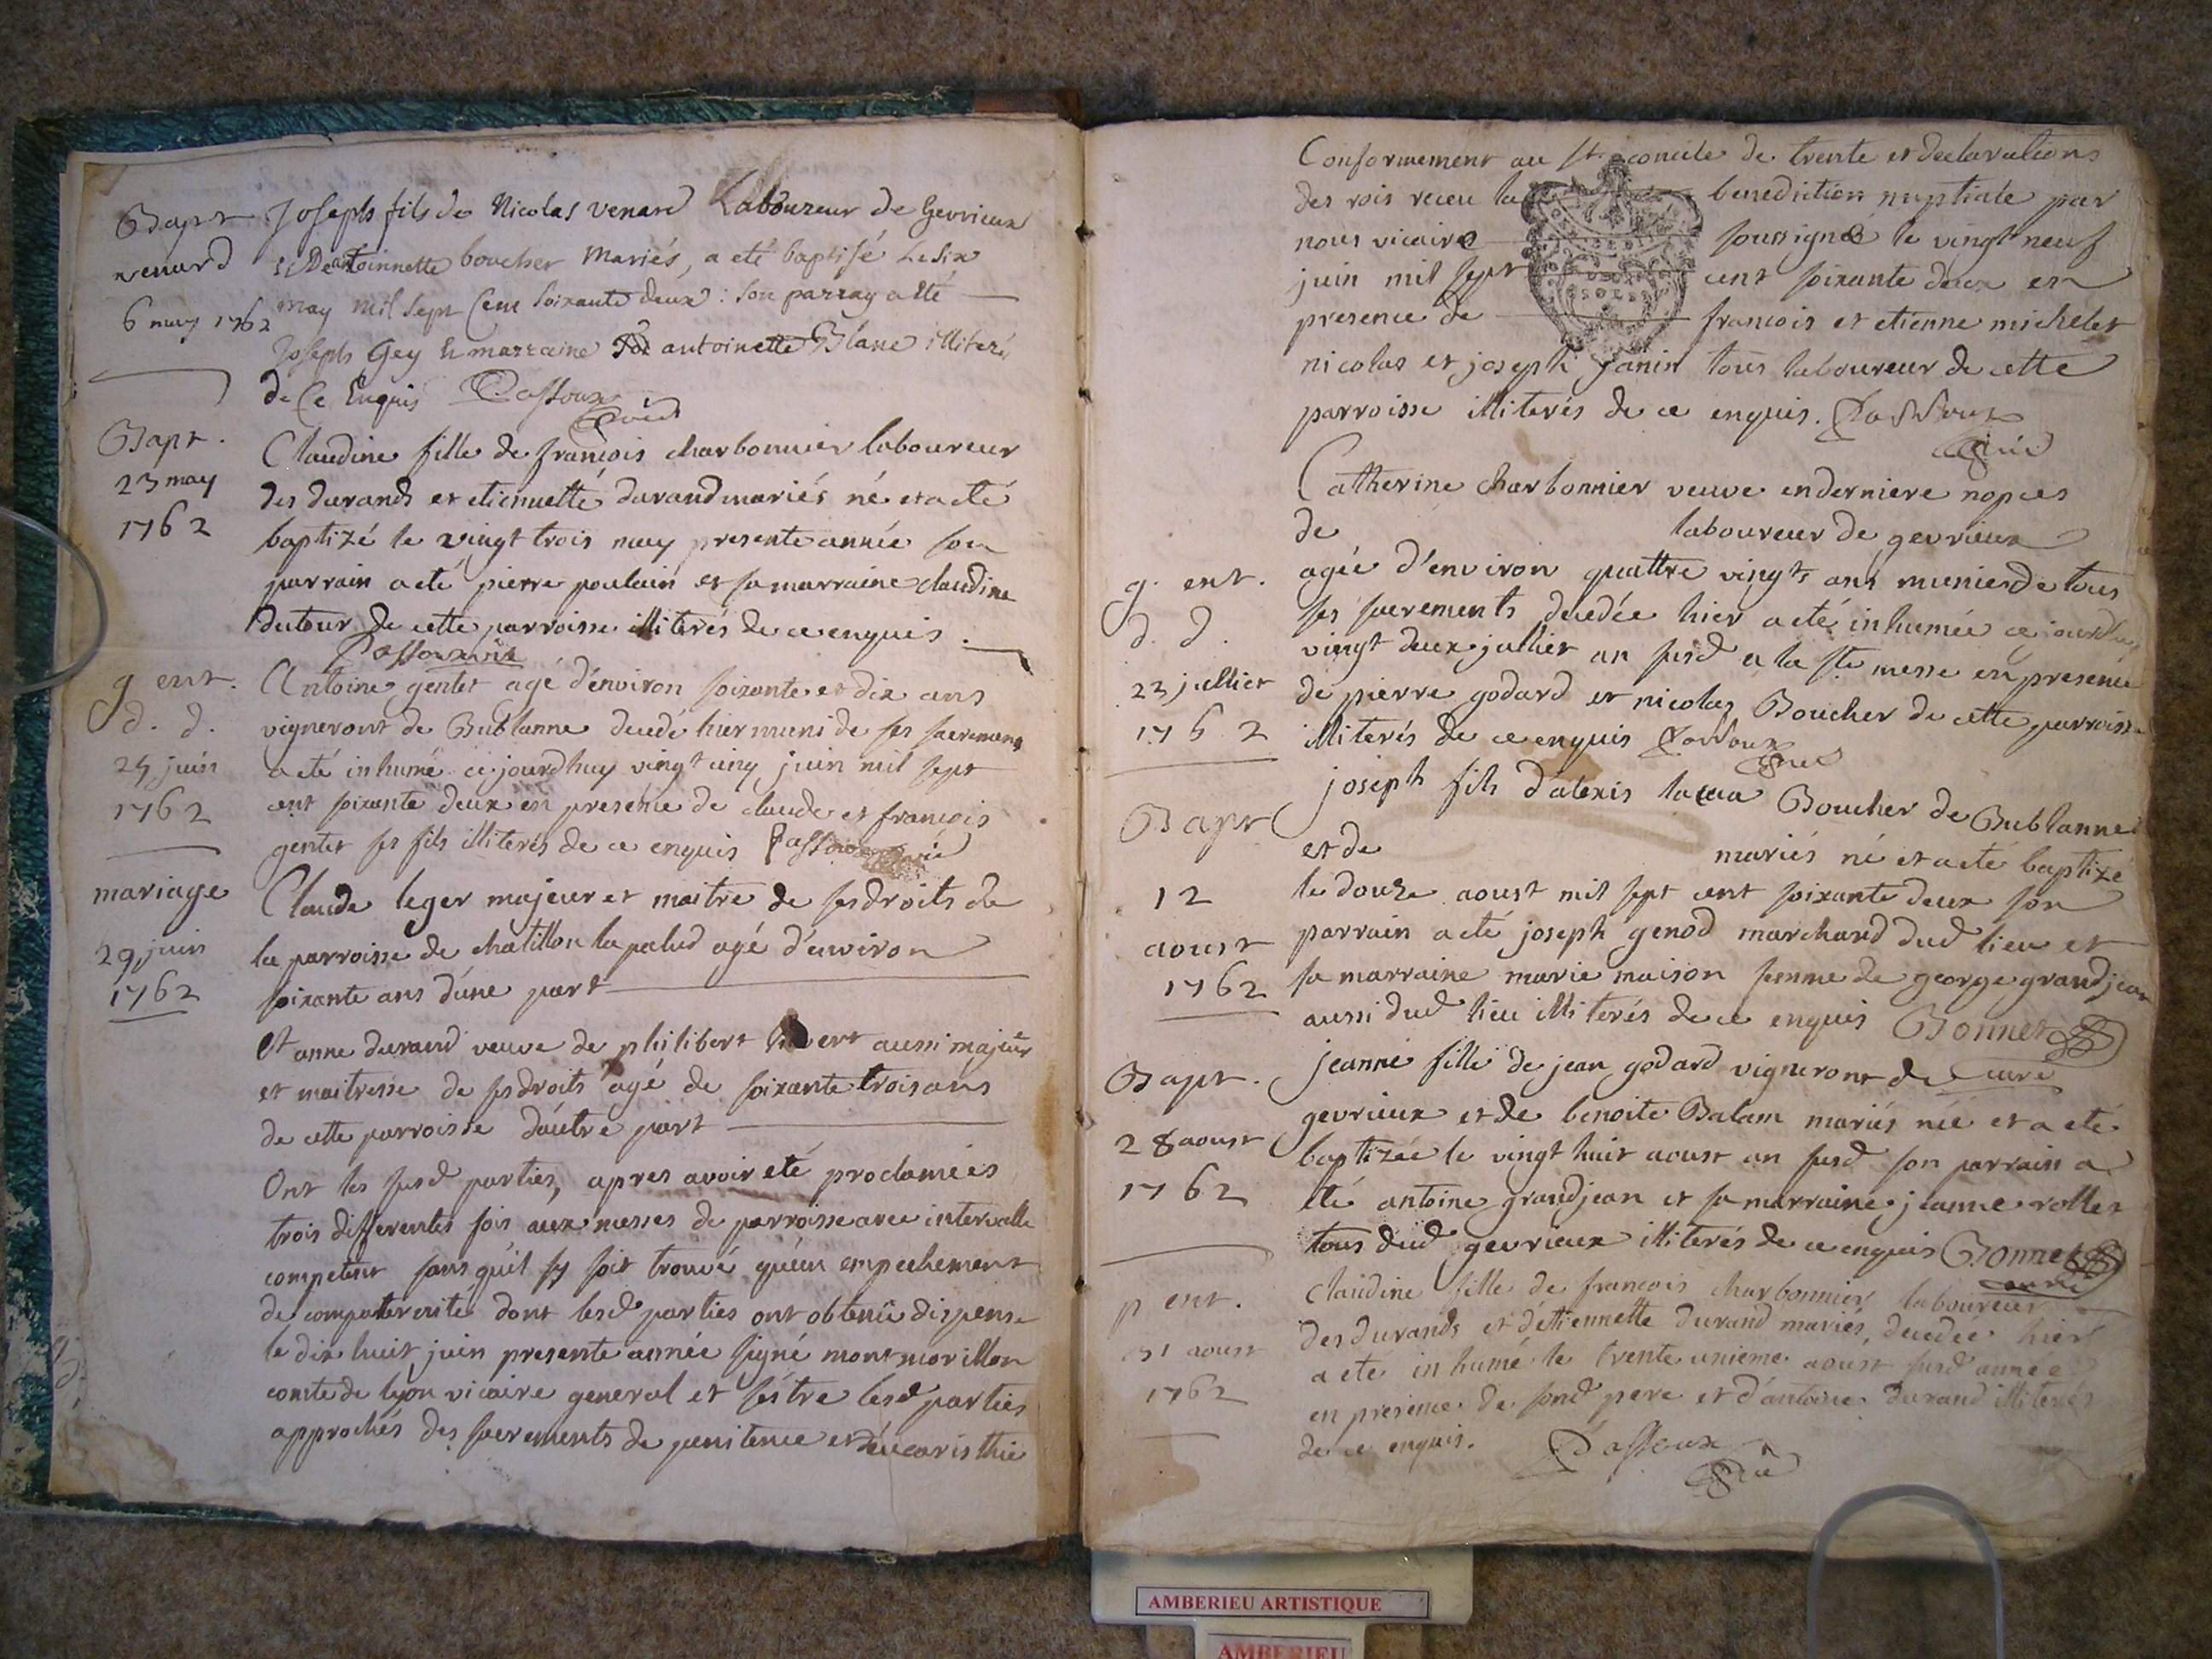 Bapt
venard
6 may 1762
Joseph fils de Nicolas venard Laboureur de Gevrieux
et De antoinnette boucher Mariés, a eté baptisé Le six
may mil sept Cent soixante deux : son parray a eté
Joseph Gey & marraine antoinette Blanc illiteré
de Ce Enquis Passoux
Bapt.
23 may
1762
Claudine fille de francois charbonnier laboureur
des durands et etiennette durand mariés né et a eté
baptizé le vingt trois may presente année son
parrain a eté pierre poulain et sa marraine claudine
dutour de cette parroisse illiterés de ce enquis.
Passoux
g ent.
d. d.
25 juin
1762
Antoine gentet agé d'environ soixante et dix ans
vigneront de Bublanne decedé hier muni de ses sacremens
a eté inhumé ce jourdhuy vingt cinq juin mil sept
cent soixante deux en presence de claude et francois
gentet ses fils illiterés de ce enquis Passoux
mariage
29 juin
1762
Claude leger majeur et maitre de ses droits de
la parroisse de chatillon la palud agé d'environ
soixante ans d'une part
Et anne durand veuve de philibert aussi majeur
et maitresse de ses droits agé de soixante trois ans
de cette parroisse d'autre part
Ont les susd parties, apres avoir eté proclamées
trois differentes fois aux messes de parroisse avec intervalle
competent sans qu'il sy soit trouvé qu'un empechement
de compaternité dont lesd parties ont obtenu dispense
le dix huit juin presente année signé montmorillon
comte de lyon vicaire general et s'etre lesd parties
approchés des sacrements de penitence et d'eucaristhie
Conformement au st concile de trente et declarations
des rois receu la benediction nuptiale par
nous vicaire soussigné le vingt neuf
juin mil sept cent soixante deux en
presence de francois et etienne michelet
nicolas et joseph janin tous laboureur de cette
parroisse illiterés de ce enquis. Passoux
g. ent.
d. d.
22 jullier
1762
Catherine charbonnier veuve en derniere nopces
de laboureur de gevrieux
agée d'environ quattre vingts ans munie de tous
ses sacrements decedée hier a eté inhumée ce jourdhuy
vingt deux jullier an susd a la ste messe en presence
de pierre godard et nicolas Boucher de cette parroisse
illiterés de ce enquis Passoux
Bapt
12
aoust
1762
joseph fils d'alexis Boucher de Bublanne
et de mariés né et a eté baptizé
le douze aoust mil sept cent soixante deux son
parrain a eté joseph genod marchand dud lieu et
sa marraine marie maison femme de george grandjean
aussi dud lieu illiterés de ce enquis Bonnet
curé
Bapt.
28 aoust
1762
jeanne fille de jean godard vigneront de
gevrieux et de benoite Balam mariés née et a eté
baptizée le vingt huit aoust an susd son parrain a
eté antoine grandjean et sa marraine jeanne rollet
tous dud gevrieux illiterés de ce enquis Bonnet
curé
p ent.
31 aoust
1762
Claudine fille de francois charbonnier laboureur
des durands et d'ettiennette durand mariés, decedée hier
a eté inhumé le trente unieme aoust susd année
en presence de sond pere et d'antoine durand illiterés
de ce enquis. Passoux
AMBERIEU ARTISTIQUE
AMBERIEU